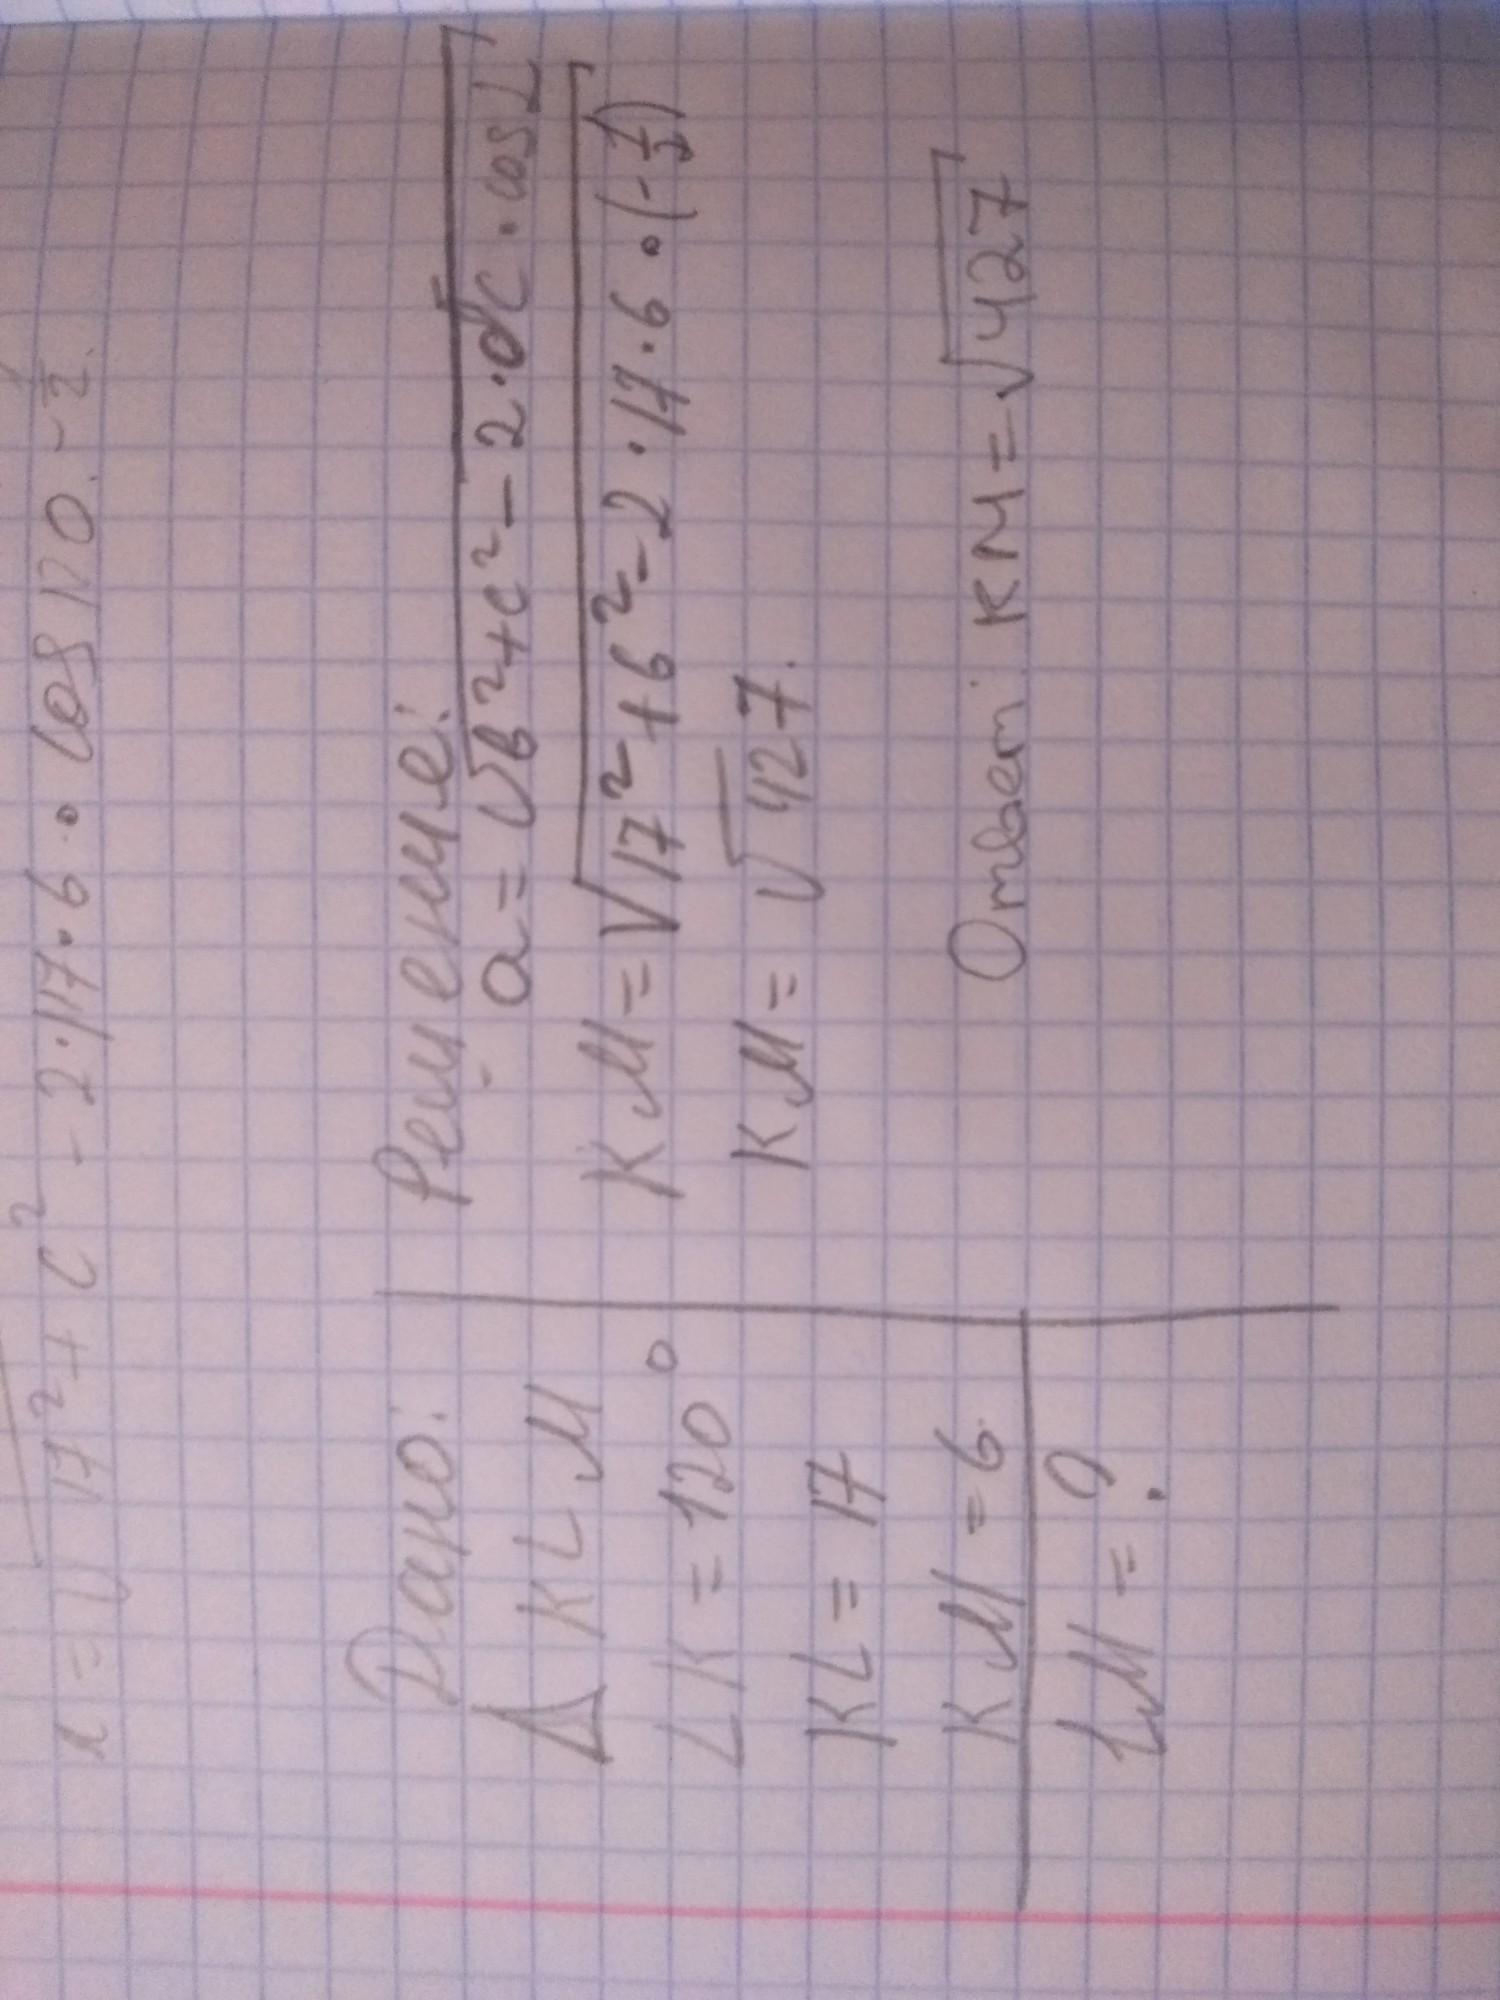 = √17² + c² - 2·17·6·cos 120. -1/2.
Дано:
Δ KLM
∠K = 120°
KL = 17
KM = 6.
LM = ?
Решение:
a = √b²+c²-2·bc·cos L
KM = √17²+6²-2·17·6·(-1/2)
KM = √427.
Ответ: KM = √427